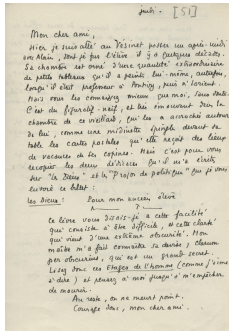 Jeudi. [51]
Mon cher ami,
Hier, je suis allé au Vésinet passer un après-midi
avec Alain, dont je fus l'élève il y a quelques décades.
Sa chambre est ornée d'une quantité extraordinaire
de petits tableaux qu'il a peints lui-même, autrefois,
lorsqu'il était professeur à Pontivy, puis à Lorient.
Mais vous les connaissez mieux que moi, sans doute.
C'est du figuratif naïf, et très émouvant dans la
chambre de ce vieillard, qui les a accrochés autour
de lui, comme une midinette épingle devant sa
table les cartes postales qu'elle reçoit des lieux
de vacances de ses copines. Mais c'est pour vous
recopier les deux dédicaces qu'il m'a écrites
sur "les Dieux" et "Propos de politique" que je vous
envoie ce billet :
Les Dieux : Pour mon ancien élève
Ce livre vous disais-je a cette facilité
qui consiste à être difficile, et cette clarté
qui vient d'une extrême obscurité. Mon
maître m'a fait connaître sa devise ; clarum
per obscurius, qui est un grand secret.
Lisez donc ces Etapes de l'homme (comme j'aime
à dire) et pensez à moi jusqu'à m'empêcher
de mourir.
Au reste, on ne meurt point.
Courage donc, mon cher ami.